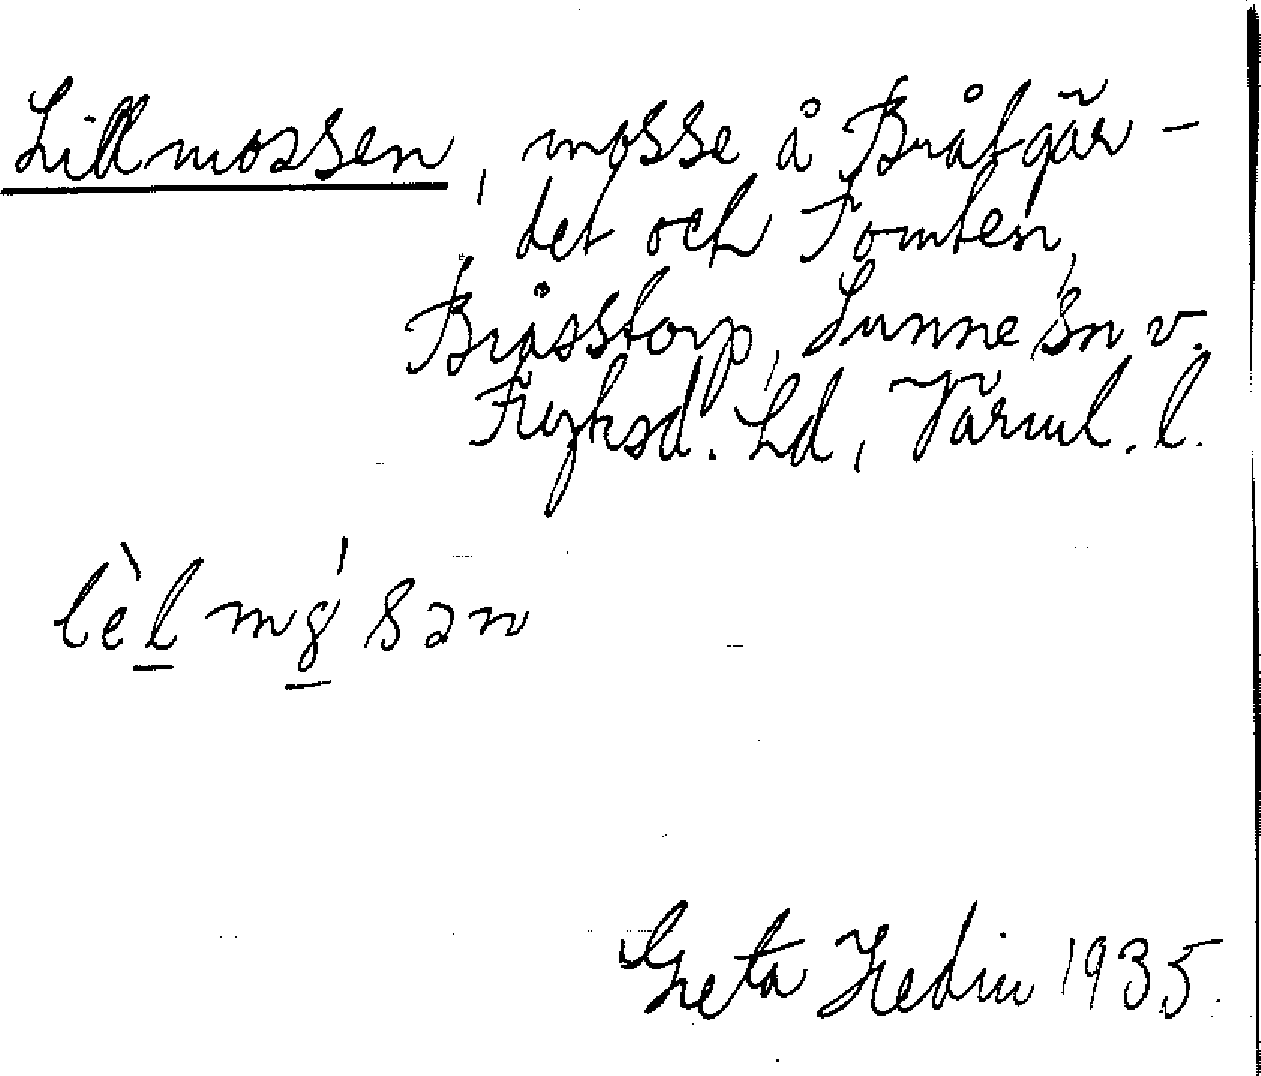 Lillmossen, mosse å Bråtgär-
det och Tomten,
Bråsstorp, Sunne sn v.
Fryksd. hd, Värml. l.
lèl mǫ́sən
Greta Hedin 1935.